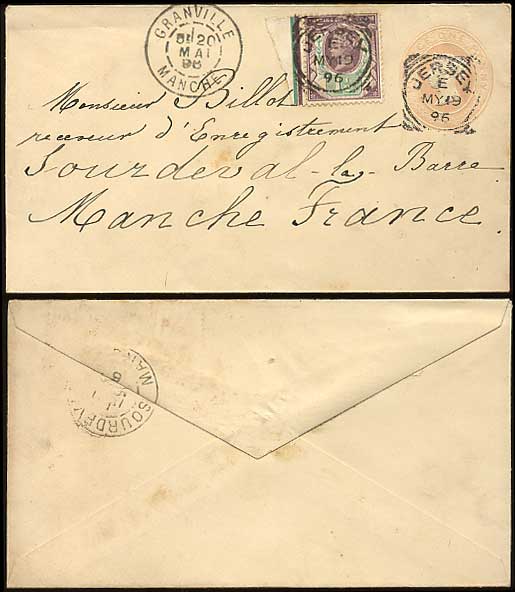 GRANVILLE
20
MAI
96
MANCHE
JERSEY
E
MY 19
96
ONE PENNY
JERSEY
E
MY 19
96
Monsieur Billot
receveur d'Enregistrement
Sourdeval-la-Barre
Manche France.